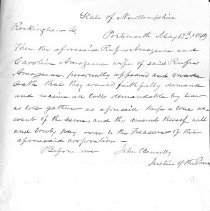 State of Newhampshire
Rockingham ss Portsmouth May 12th
Then the aforesaid Rufus Amazeen and
Caroline Amazeen wife of said Rufus
Amazeen, personally appeared and made
oath that they would faithfully demand
and receive all tolls demandable by law
as toll gatherer as aforesaid keep a true ac
count of the same, and the amount thereof will
and truly pay over to the Treasurer of the
aforesaid corporation —
Before me John
Justice of the Peace